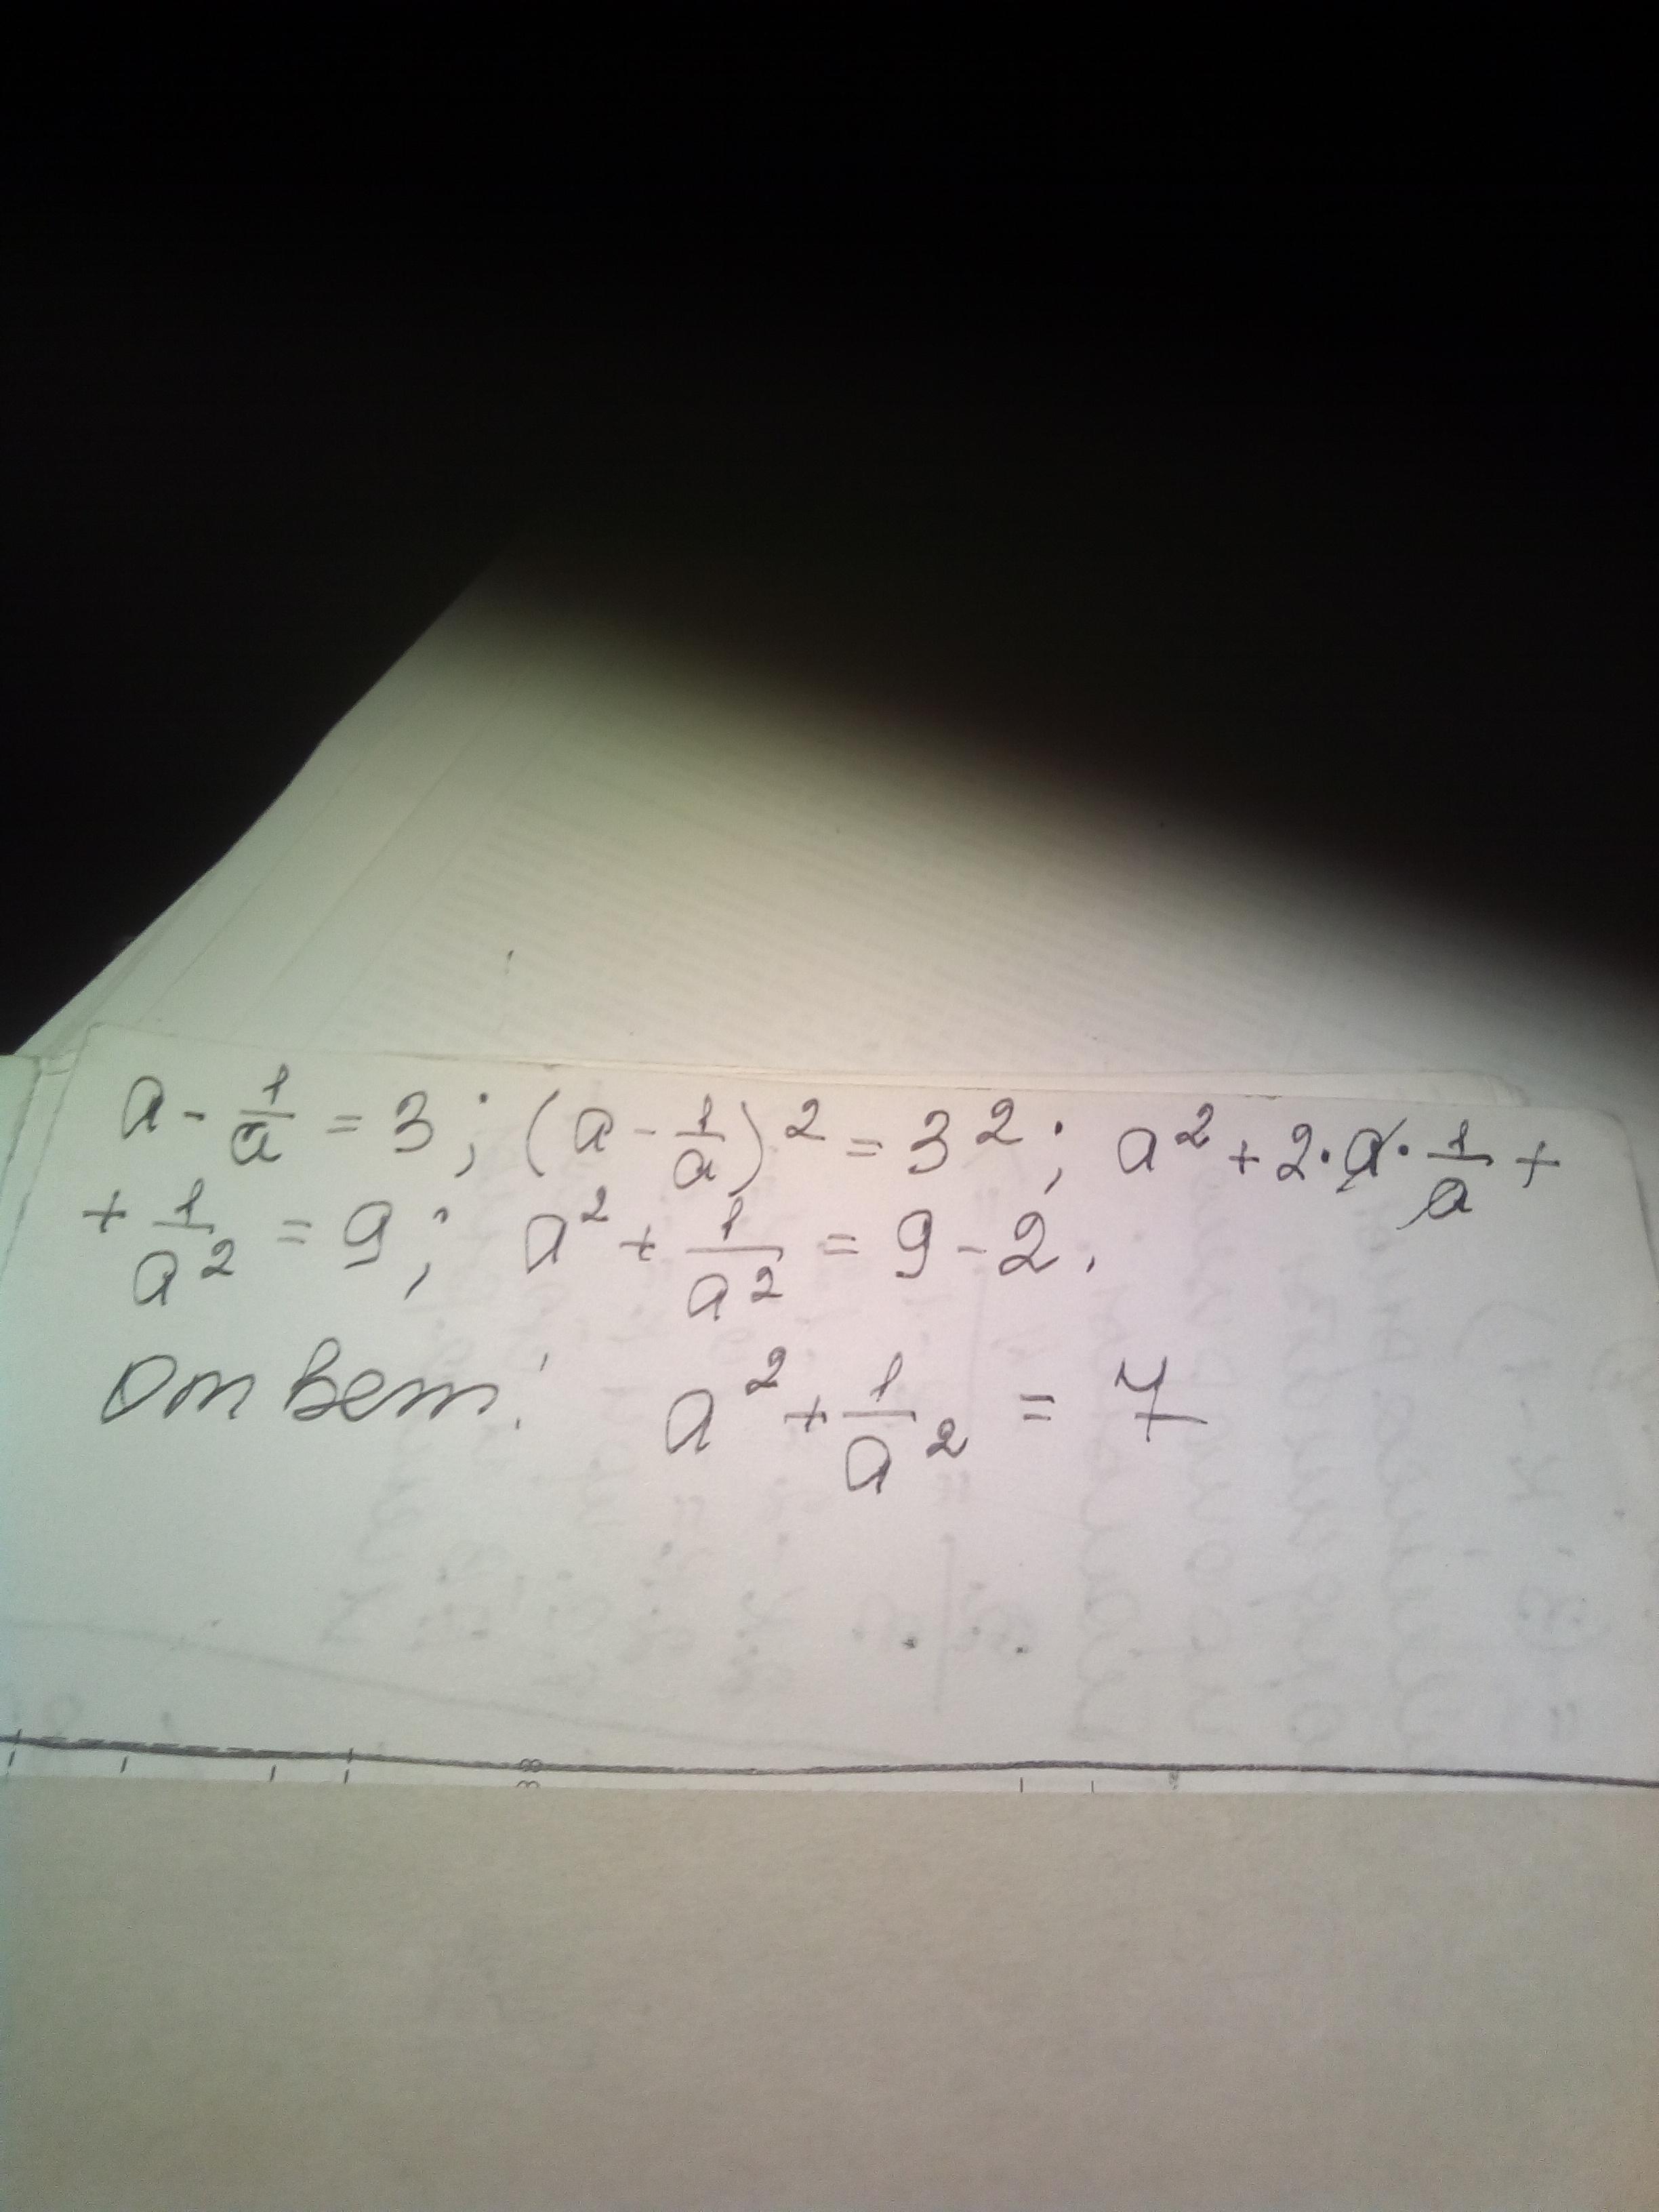 a - 1/a = 3; (a - 1/a)² = 3²; a² + 2·a·1/a +
+ 1/a² = 9; a² + 1/a² = 9 - 2.
Ответ: a² + 1/a² = 7